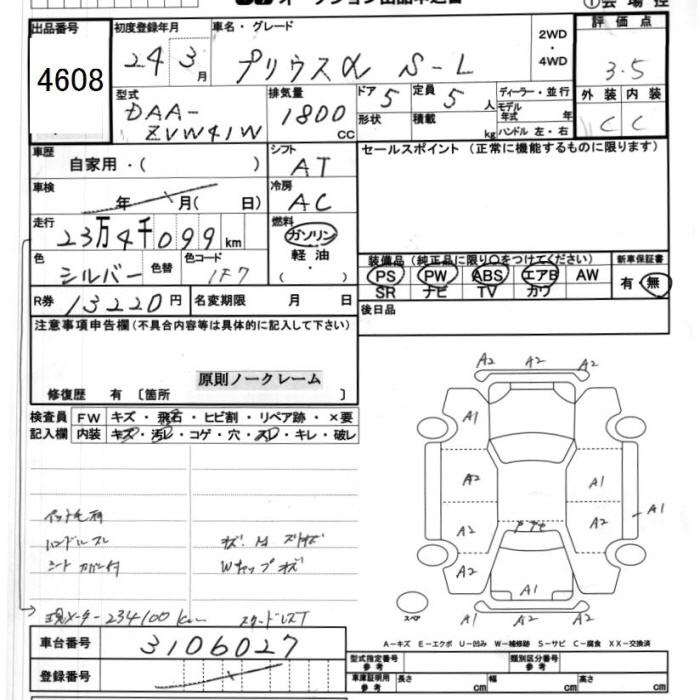 出品番号
4608
初度登録年月
24 3月
車名・グレード
プリウスα S-L
2WD
・
4WD
評価点
3.5
外装 内装
C C
型式
DAA-
ZVW41W
排気量
1800
CC
ドア 5
定員 5 人
形状
積載 kg
ディーラー・並行
モデル年式 年
ハンドル 左・右
車歴
自家用・( )
シフト
AT
セールスポイント (正常に機能するものに限ります)
車検
年 月( 日)
冷房
AC
走行
23万4千099km
燃料
ガソリン
軽油
・
( )
色
シルバー
色替
色コード
1F7
装備品 (純正品に限り○をつけてください)
PS PW ABS エアB AW
SR ナビ TV カワ
新車保証書
有・無
R券 13220円
名変期限 月 日
後日品
注意事項申告欄 (不具合内容等は具体的に記入して下さい)
原則ノークレーム
修復歴 有 〔箇所 〕
検査員
記入欄
FW キズ・飛石・ヒビ割・リペア跡・×要
内装 キズ・汚レ・コゲ・穴・スレ・キレ・破レ
ペット毛有
ハンドルスレ
シートカバー付
Wキャップキズ
現メーター 234100km
スタッドレスT
A2 A2 A2
A1
A2 A1
A1
A2 A2
A2
A1
A2 A2 A2
スペア
A-キズ E-エクボ U-凹み W-補修跡 S-サビ C-腐食 XX-交換済
車台番号
3106027
登録番号
型式指定番号
参考
類別区分番号
参考
車庫証明用
参考
長さ cm 幅 cm 高さ cm